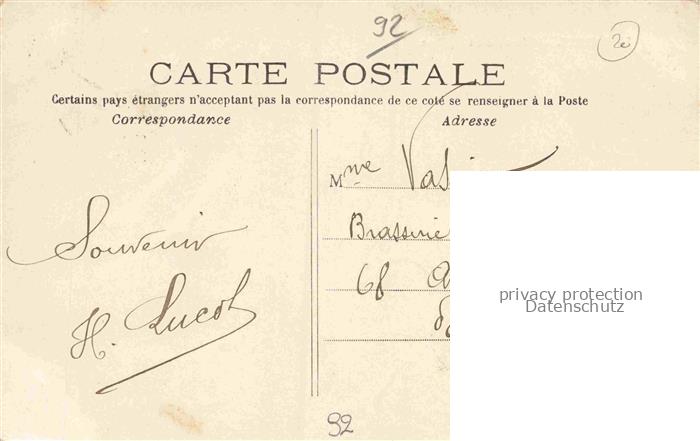 92
CARTE POSTALE
Certains pays étrangers n'acceptant pas la correspondance de ce coté se renseigner à la Poste
Correspondance
Adresse
Mme
Souvenir
Brasserie
H. Lucot
68
privacy protection
Datenschutz
92